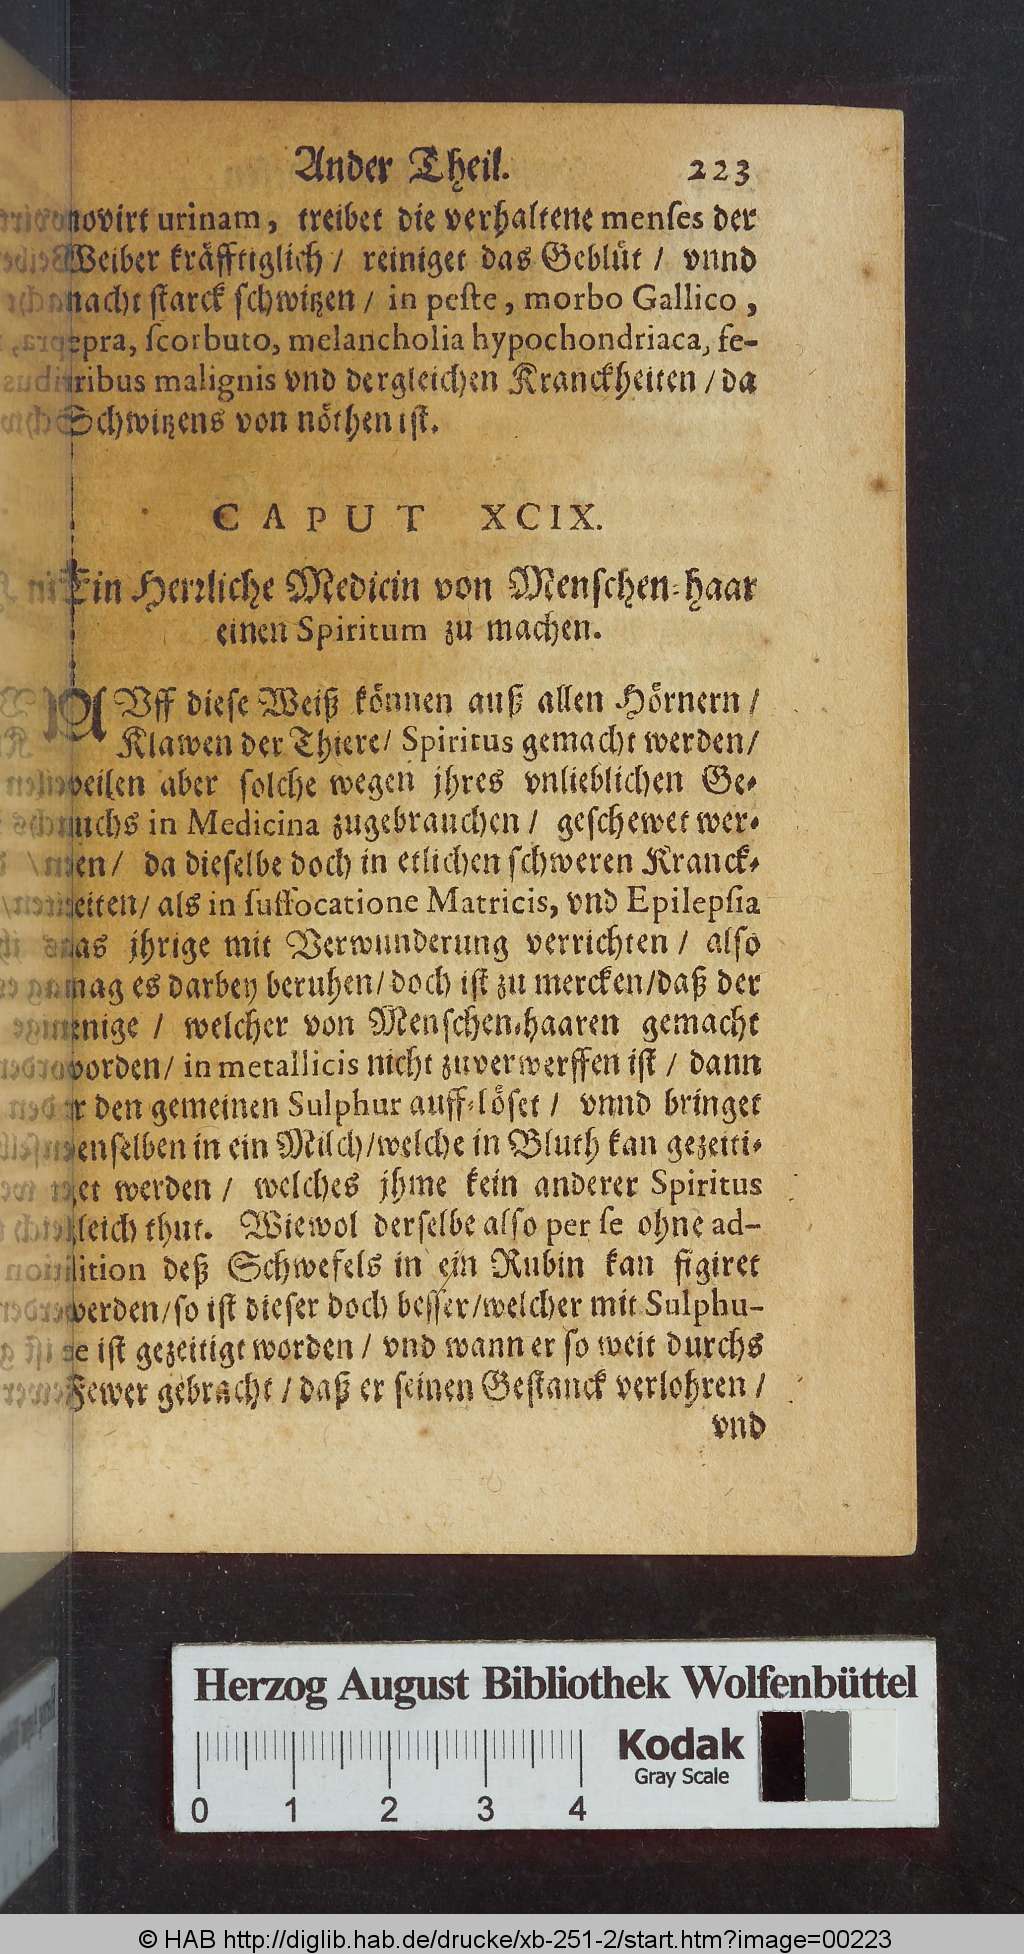 Ander Theil. 223
movirt urinam, treibet die verhaltene menses der
Weiber kräfftiglich / reiniget das Geblüt / vnnd
macht starck schwitzen / in peste, morbo Gallico,
lepra, scorbuto, melancholia hypochondriaca, fe-
bribus malignis vnd dergleichen Kranckheiten / da
Schwitzens von nöthen ist.
CAPUT XCIX.
Ein Herrliche Medicin von Menschen-haar
einen Spiritum zu machen.
AVff diese Weiß können auß allen Hörnern /
Klawen der Thiere / Spiritus gemacht werden /
weilen aber solche wegen jhres vnlieblichen Ge-
ruchs in Medicina zugebrauchen / geschewet wer-
den / da dieselbe doch in etlichen schweren Kranck-
heiten / als in suffocatione Matricis, vnd Epilepsia
das jhrige mit Verwunderung verrichten / also
mag es darbey beruhen / doch ist zu mercken / daß der
jenige / welcher von Menschen-haaren gemacht
worden / in metallicis nicht zuverwerffen ist / dann
er den gemeinen Sulphur auff-löset / vnnd bringet
denselben in ein Milch / welche in Bluth kan gezeiti-
get werden / welches jhme kein anderer Spiritus
gleich thut. Wiewol derselbe also per se ohne ad-
dition deß Schwefels in ein Rubin kan figiret
werden / so ist dieser doch besser / welcher mit Sulphu-
re ist gezeitigt worden / vnd wann er so weit durchs
Fewer gebracht / daß er seinen Gestanck verlohren /
vnd
Herzog August Bibliothek Wolfenbüttel
Kodak
Gray Scale
0 1 2 3 4
© HAB http://diglib.hab.de/drucke/xb-251-2/start.htm?image=00223